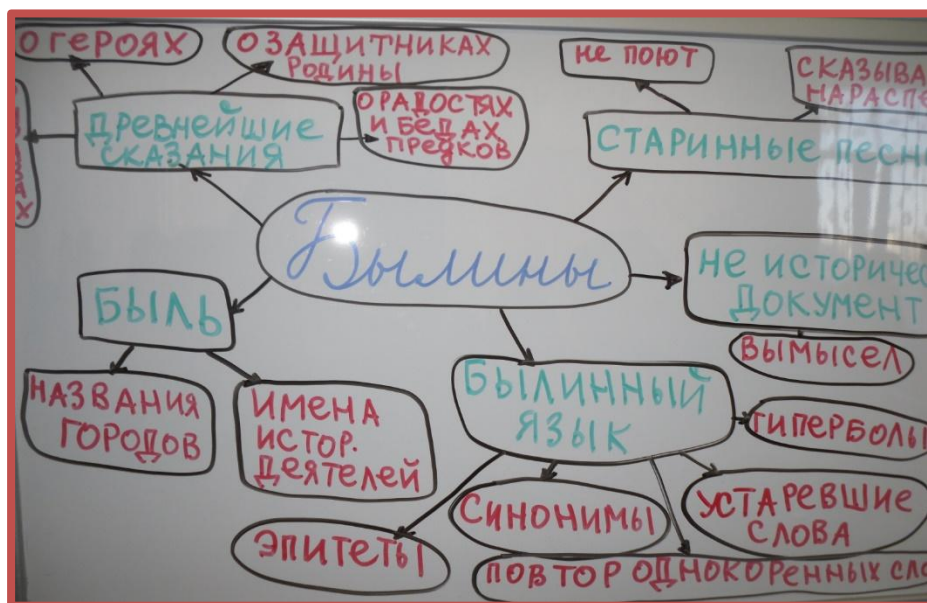 О ГЕРОЯХ
О ЗАЩИТНИКАХ
РОДИНЫ
НЕ ПОЮТ
СКАЗЫВА
НАРАСПЕ
ДРЕВНЕЙШИЕ
СКАЗАНИЯ
О РАДОСТЯХ
И БЕДАХ
ПРЕДКОВ
СТАРИННЫЕ ПЕСН
Былины
БЫЛЬ
НЕ ИСТОРИЧЕС
ДОКУМЕНТ
ВЫМЫСЕЛ
НАЗВАНИЯ
ГОРОДОВ
ИМЕНА
ИСТОР.
ДЕЯТЕЛЕЙ
БЫЛИННЫЙ
ЯЗЫК
ГИПЕРБОЛЫ
ЭПИТЕТЫ
СИНОНИМЫ
УСТАРЕВШИЕ
СЛОВА
ПОВТОР ОДНОКОРЕННЫХ СЛО